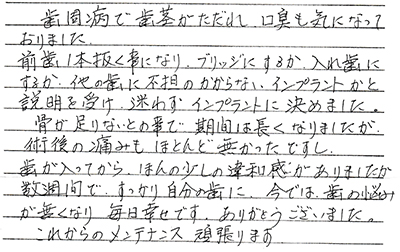 歯周病で歯茎がただれ、口臭も気になって
おりました。
前歯1本抜く事になり、ブリッジにするか、入れ歯に
するか、他の歯に不担のかからない、インプラントかと
説明を受け、迷わずインプラントに決めました。
骨が足りないとの事で、期間は長くなりましたが、
術後の痛みもほとんど無かったですし、
歯が入ってから、ほんの少しの違和感がありましたが
数週間で、すっかり自分の歯に、今では、歯の悩み
が無くなり毎日幸せです。ありがとうございました。
これからのメンテナンス頑張ります